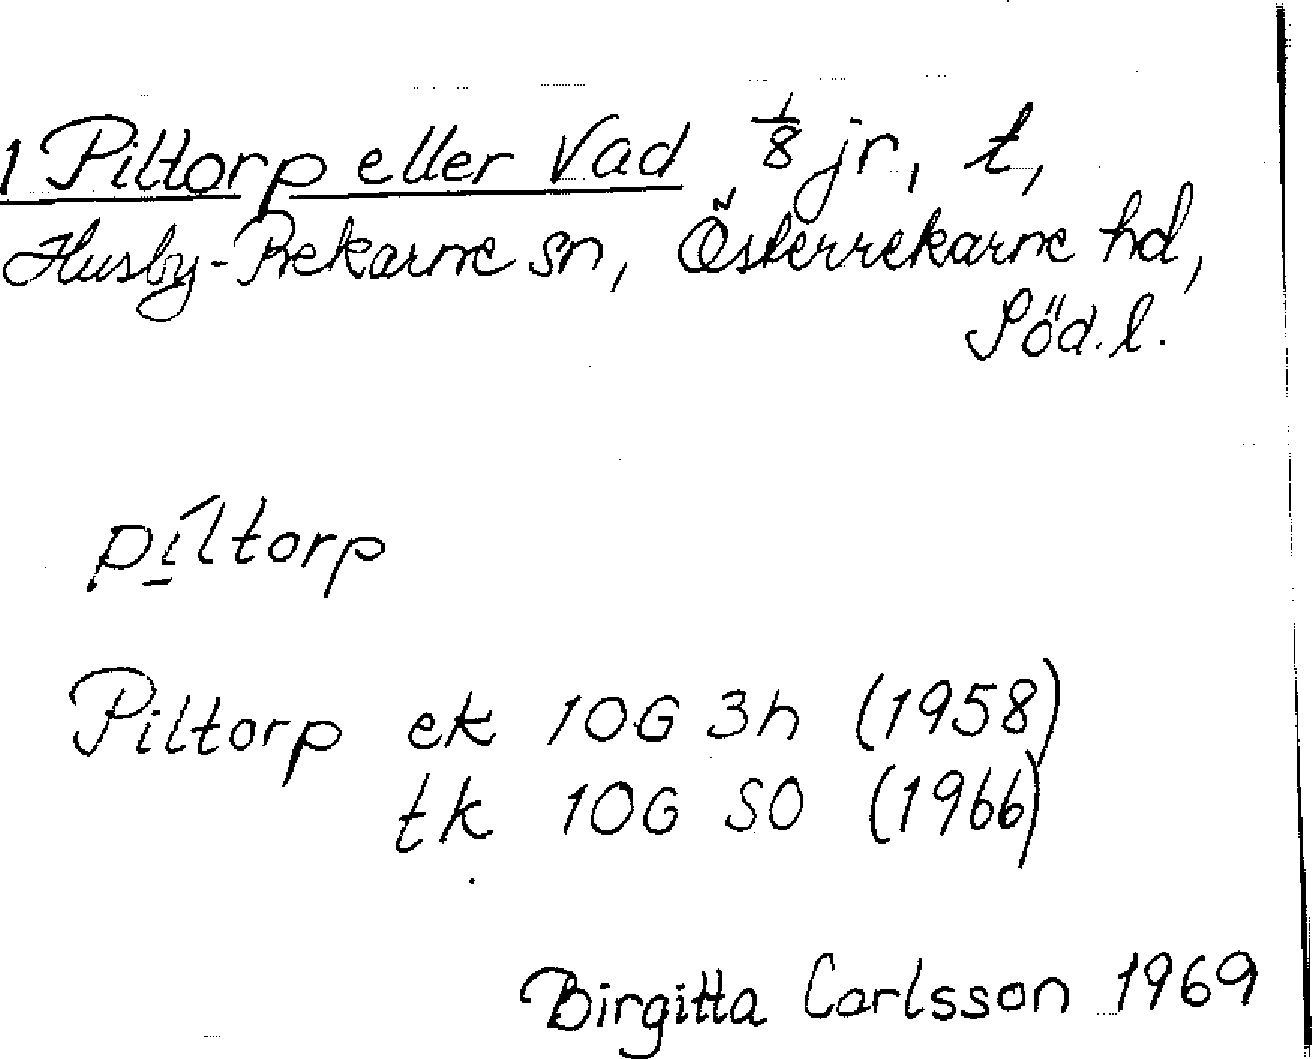 1 Piltorp eller Vad 1/8 jr, t,
Husby-Rekarne sn, Österrekarne hd,
Söd.l.
pí̲ltorp
Piltorp ek 10G 3h (1958)
tk 10G SO (1966)
Birgitta Carlsson 1969